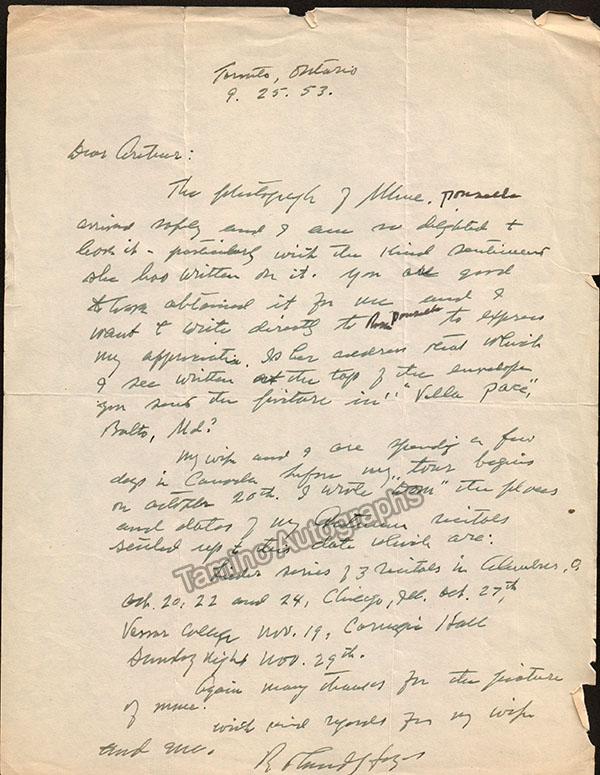 Toronto, Ontario
9. 25. 53.
Dear Arthur:
The photograph of Mme. Ponselle
arrived safely and I am so delighted to
have it - particularly with the kind sentiment
she has written on it. You are good
to have obtained it for me and I
want to write directly to Rosa Ponselle to express
my appreciation. Is her address that which
I see written at the top of the envelope
you sent the picture in: "Villa Pace",
Balto, Md?
My wife and I are spending a few
days in Canada before my tour begins
on October 20th. I wrote "Dom" the places
and dates of my Autumn recitals
settled up to this date which are:
Lieder series of 3 recitals in Columbus, O.
Oct. 20, 22 and 24, Chicago, Ill. Oct. 27th,
Vassar College Nov. 19, Carnegie Hall
Sunday Night Nov. 29th.
Again many thanks for the picture
of mme.
With kind regards for my wife
and me.
Roland Hayes
Tamino Autographs